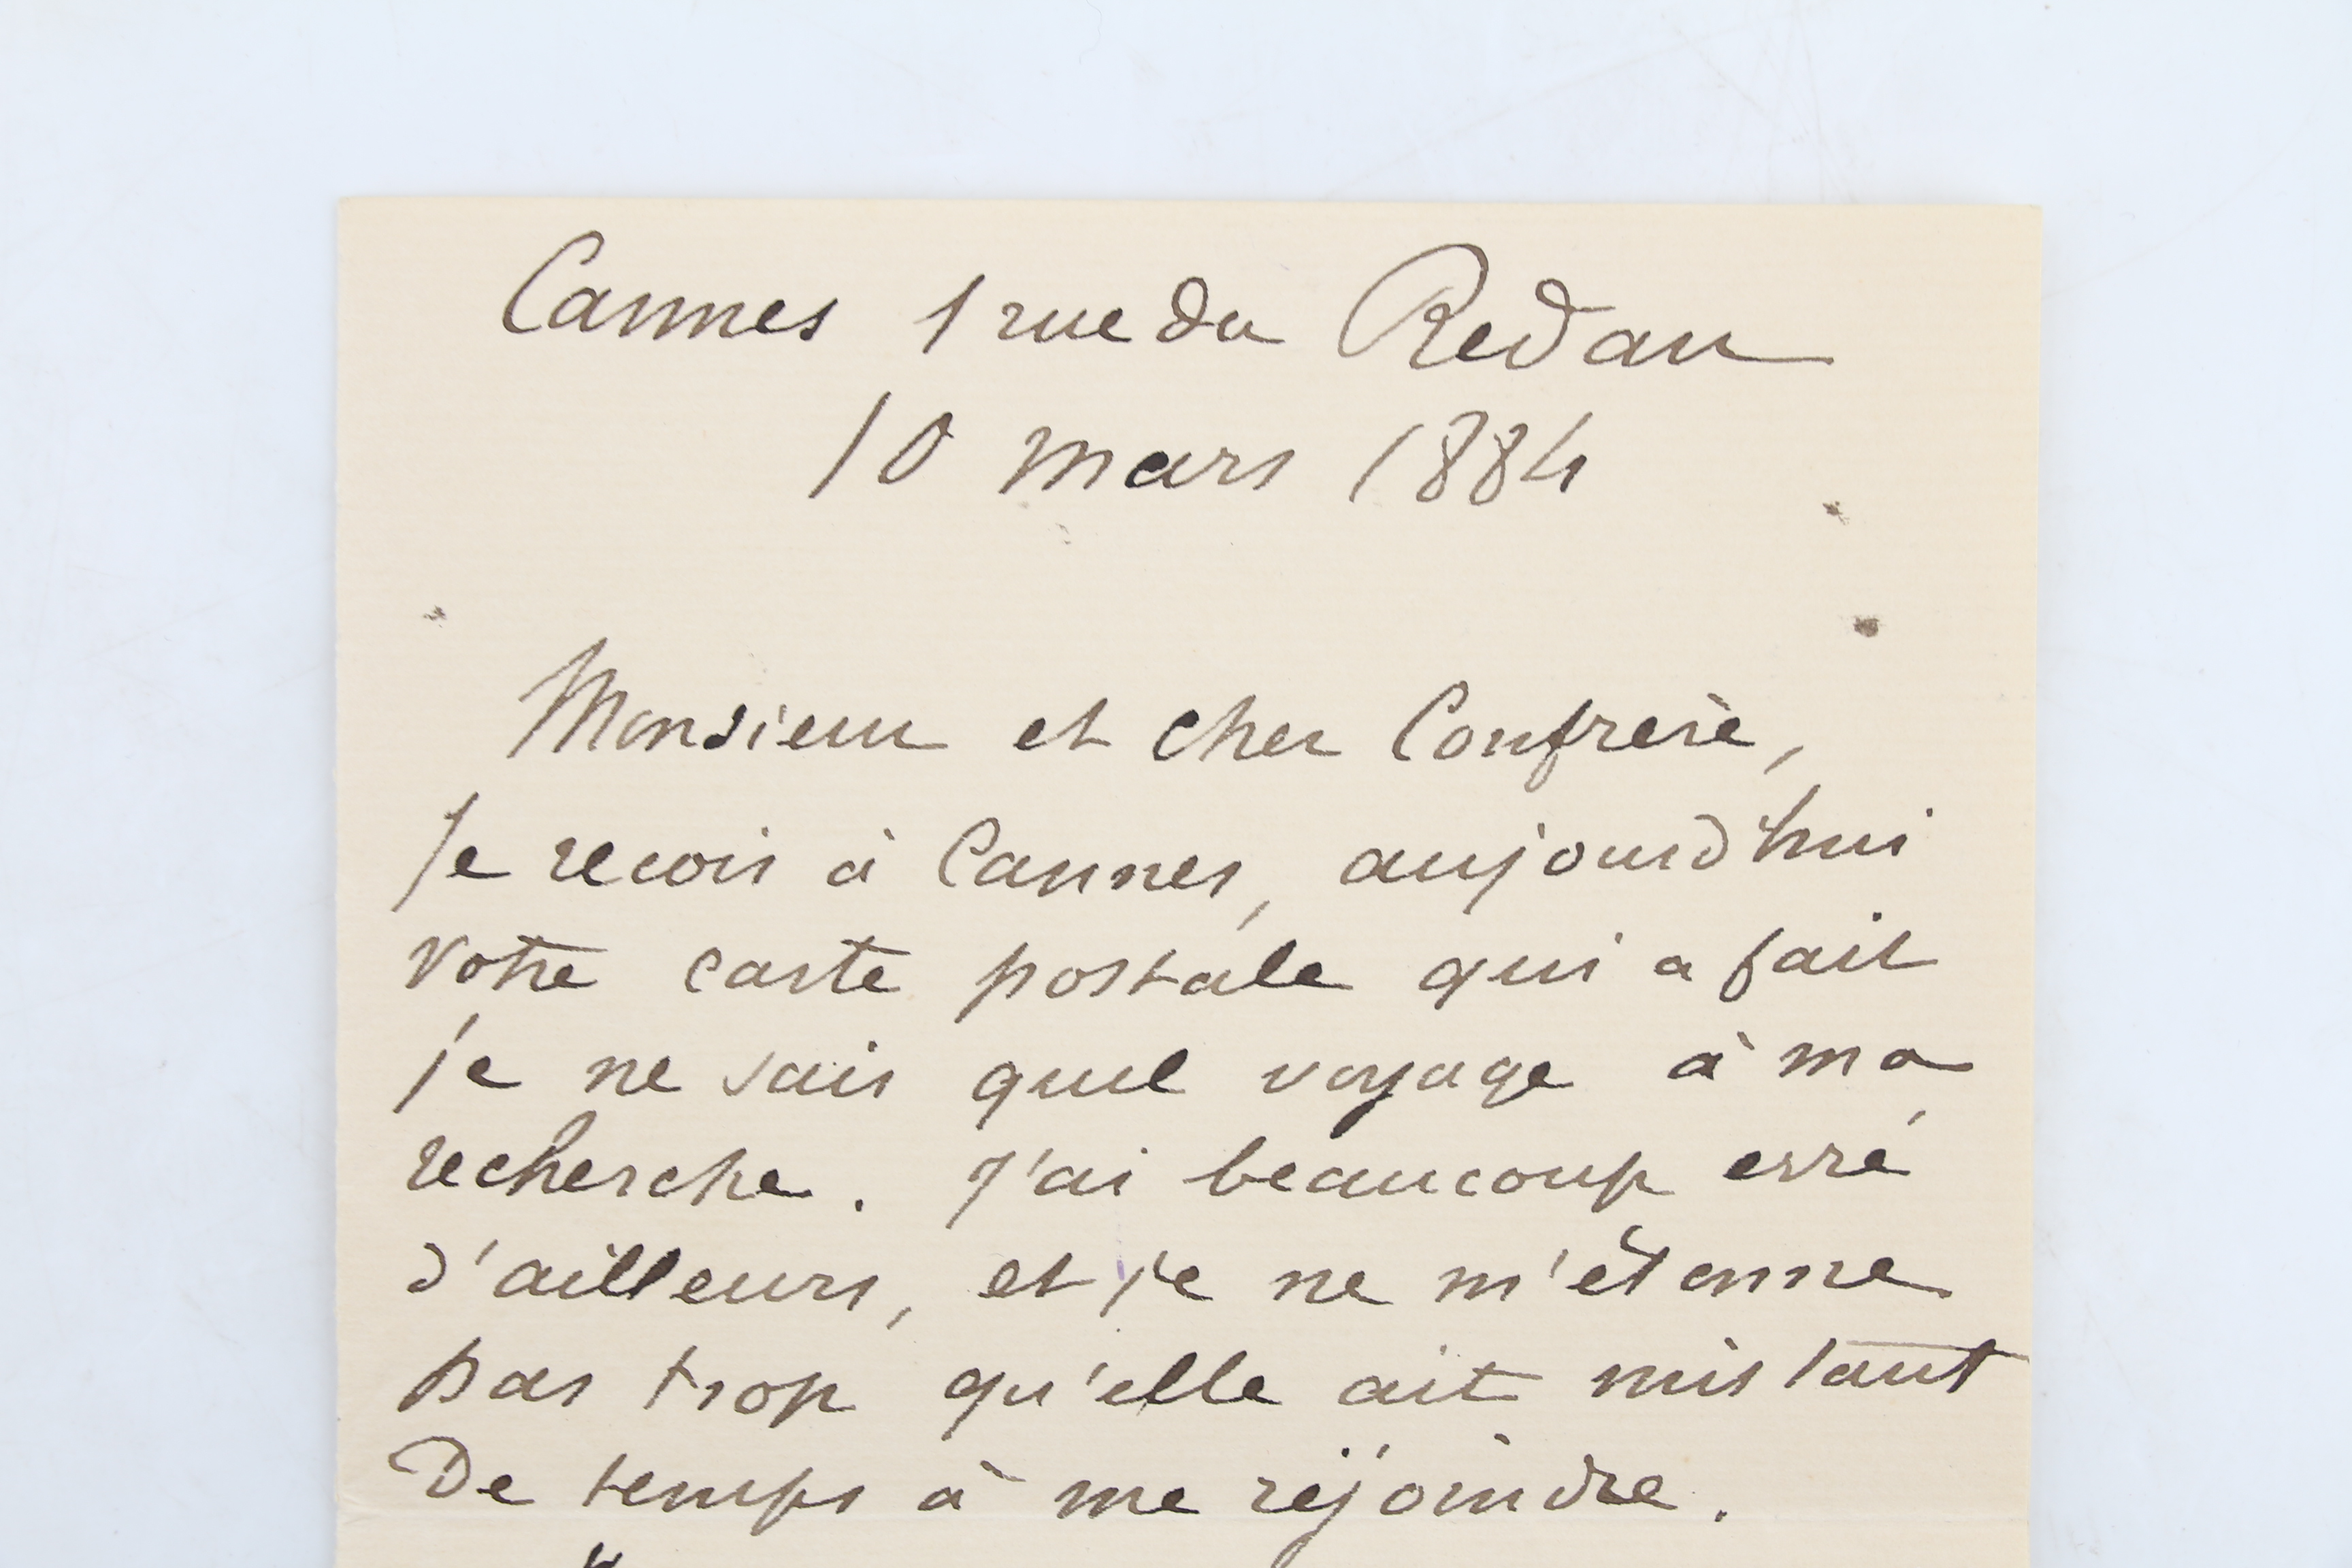 Cannes 1 rue du Redan
10 mars 1884
Monsieur et cher Confrère,
Je recois à Cannes, aujourd'hui
votre carte postale qui a fait
je ne sais quel voyage à ma
recherche. J'ai beaucoup erré
d'ailleurs, et je ne m'étonne
pas trop qu'elle ait mis tant
De temps à me rejoindre.